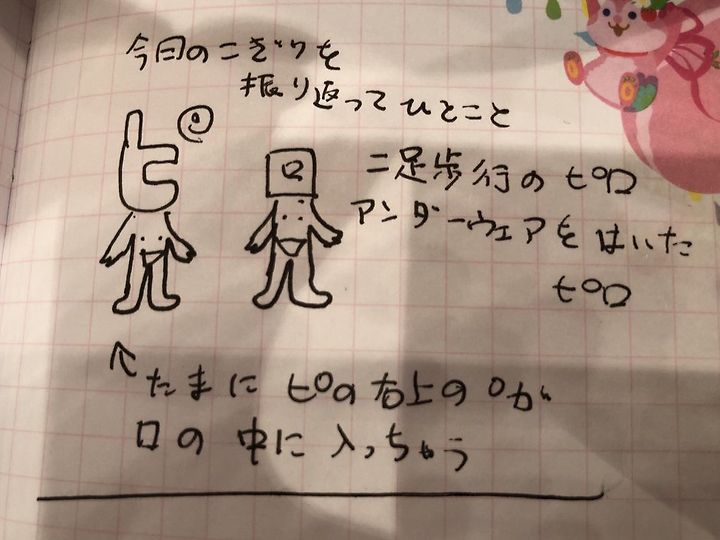 今日のこぎりを
振り返って ひとこと
ピ ロ
二足歩行の ピロ
アンダーウェアを はいた
ピロ
↑たまに ピの右上の○が
ロの中に入っちゃう